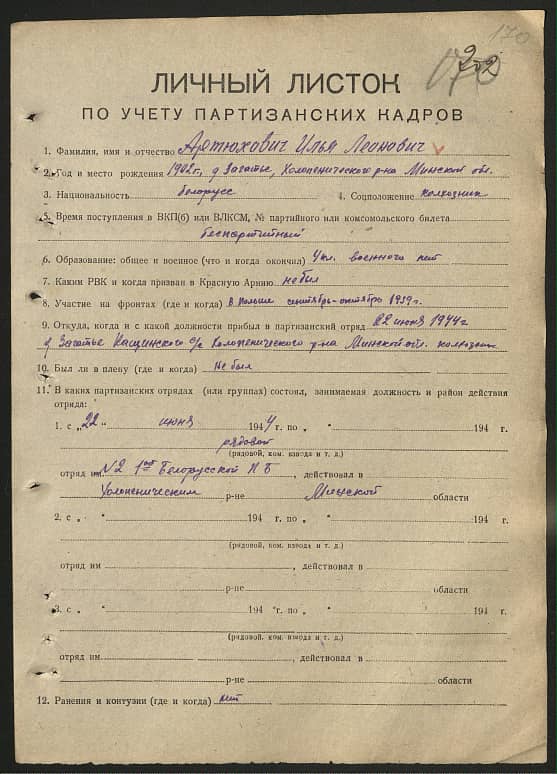 170
202
ЛИЧНЫЙ ЛИСТОК
ПО УЧЕТУ ПАРТИЗАНСКИХ КАДРОВ
1. Фамилия, имя и отчество Артюхович Илья Леонович
2. Год и место рождения 1902г, д Загатье, Холопенического р-на Минской обл.
3. Национальность белорусс 4. Соцположение колхозник
5. Время поступления в ВКП(б) или ВЛКСМ, № партийного или комсомольского билета
беспартийный
6. Образование: общее и военное (что и когда окончил) 4 кл. военного нет
7. Каким РВК и когда призван в Красную Армию не был
8. Участие на фронтах (где и когда) в Польше сентябрь-октябрь 1939г.
9. Откуда, когда и с какой должности прибыл в партизанский отряд 22 июня 1944г
д Загатье с/с Холопенического р-на Минской обл. колхозник
10. Был ли в плену (где и когда) Не был
11. В каких партизанских отрядах (или группах) состоял, занимаемая должность и район действия
отряда:
1. с „22“ июня 1944 г. по „ “ 194 г.
рядовой
(рядовой, ком. взвода и т. д.)
отряд им. №2 1ой Белорусской П Б, действовал в
Холопеническим р-не Минской области
2. с „ “ 194 г. по „ “ 194 г.
(рядовой, ком. взвода и т. д.)
отряд им , действовал в
р-не области
3. с „ “ 194 г. по „ “ 194 г.
(рядовой, ком. взвода и т. д.)
отряд им. , действовал в
р-не области
12. Ранения и контузии (где и когда) нет